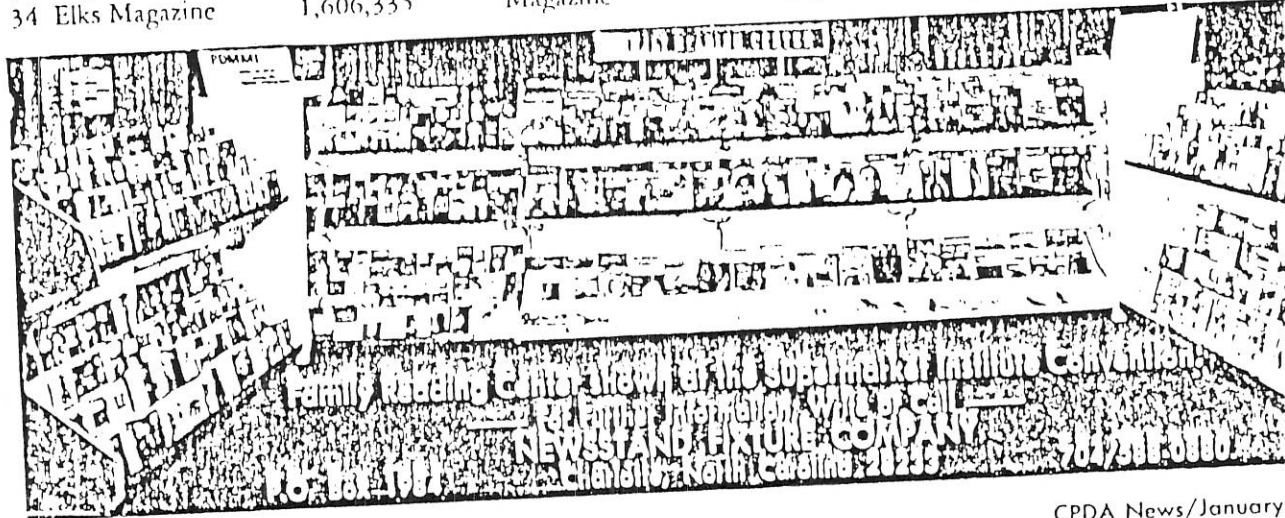 34 Elks Magazine 1,606,335 Magazine
PDMMI
Family Reading Center shown at the Supermarket Institute Convention!
For Further Information, Write or Call
NEWSSTAND FIXTURE COMPANY
P.O. Box 1984 Charlotte, North Carolina 28233 704/588-0880
CPDA News/January